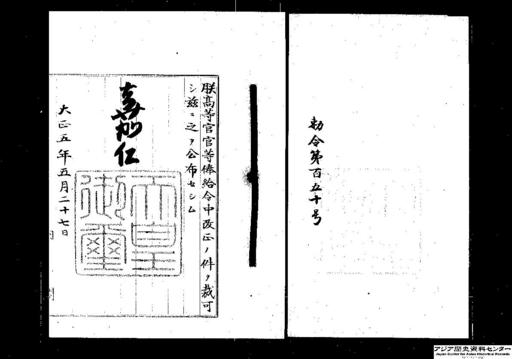 勅令第百五十号
朕高等官官等俸給令中改正ノ件ヲ裁可
シ茲ニ之ヲ公布セシム
嘉仁
天皇御璽
大正五年五月二十七日
内
アジア歴史資料センター
Japan Center for Asian Historical Records